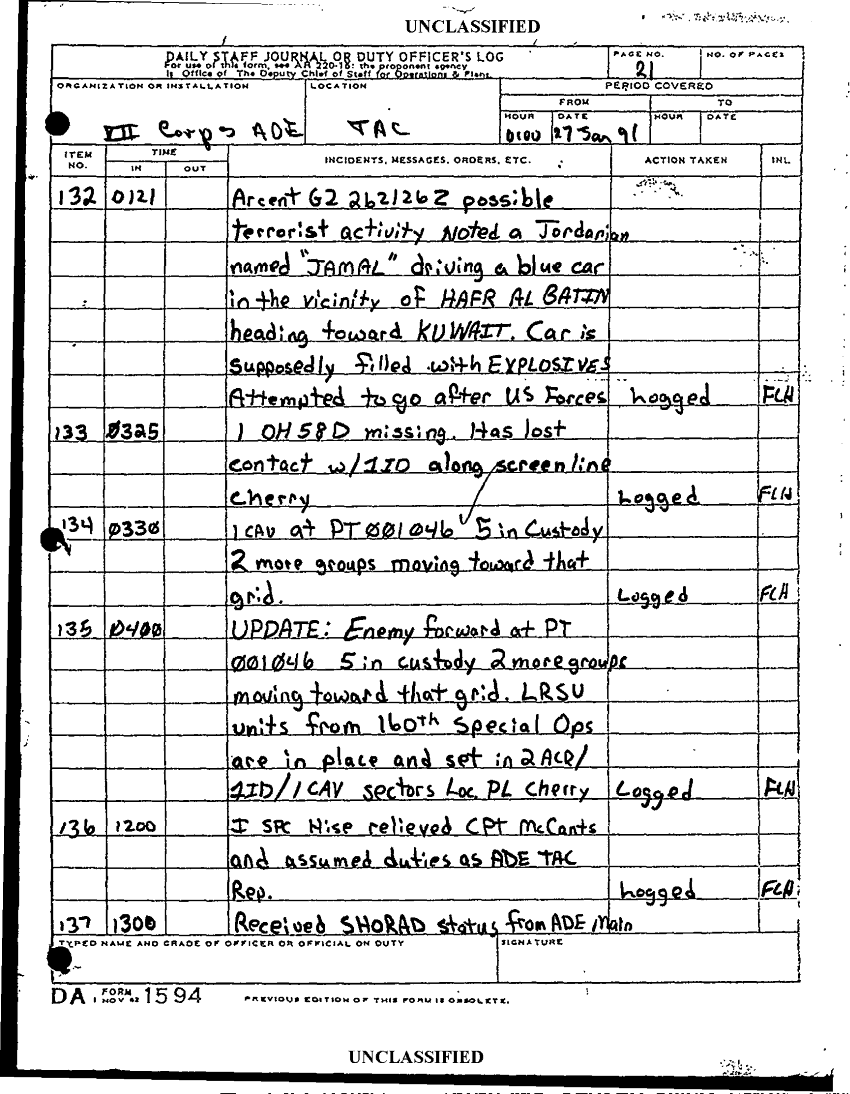 UNCLASSIFIED
DAILY STAFF JOURNAL OR DUTY OFFICER'S LOG
For use of this form, see AR 220-15; the proponent agency
is Office of The Deputy Chief of Staff for Operations & Plans.
PAGE NO.
21
NO. OF PAGES
ORGANIZATION OR INSTALLATION
LOCATION
PERIOD COVERED
FROM
TO
HOUR
DATE
HOUR
DATE
VII Corps ADE
TAC
0100
27 Jan 91
ITEM NO.
TIME
IN
OUT
INCIDENTS, MESSAGES, ORDERS, ETC.
ACTION TAKEN
INL
132 0121 Arcent G2 262126Z possible
terrorist activity Noted a Jordanian
named "JAMAL" driving a blue car
in the vicinity of HAFR AL BATIN
heading toward KUWAIT. Car is
supposedly filled with EXPLOSIVES
Attempted to go after US Forces Logged FLH
133 0325 1 OH 58D missing. Has lost
contact w/1ID along screen line
Cherry Logged FLH
134 0330 1 CAV at PT 001046 5 in Custody
2 more groups moving toward that
grid. Logged FLH
135 0400 UPDATE: Enemy forward at PT
001046 5 in custody 2 more groups
moving toward that grid. LRSU
units from 160th Special Ops
are in place and set in 2 ACR/
1ID/1 CAV sectors Loc PL Cherry Logged FLH
136 1200 I SPC Hise relieved CPT McCants
and assumed duties as ADE TAC
Rep. Logged FLH
137 1300 Received SHORAD status from ADE Main
TYPED NAME AND GRADE OF OFFICER OR OFFICIAL ON DUTY
SIGNATURE
DA FORM 1 NOV 62 1594
PREVIOUS EDITION OF THIS FORM IS OBSOLETE.
UNCLASSIFIED